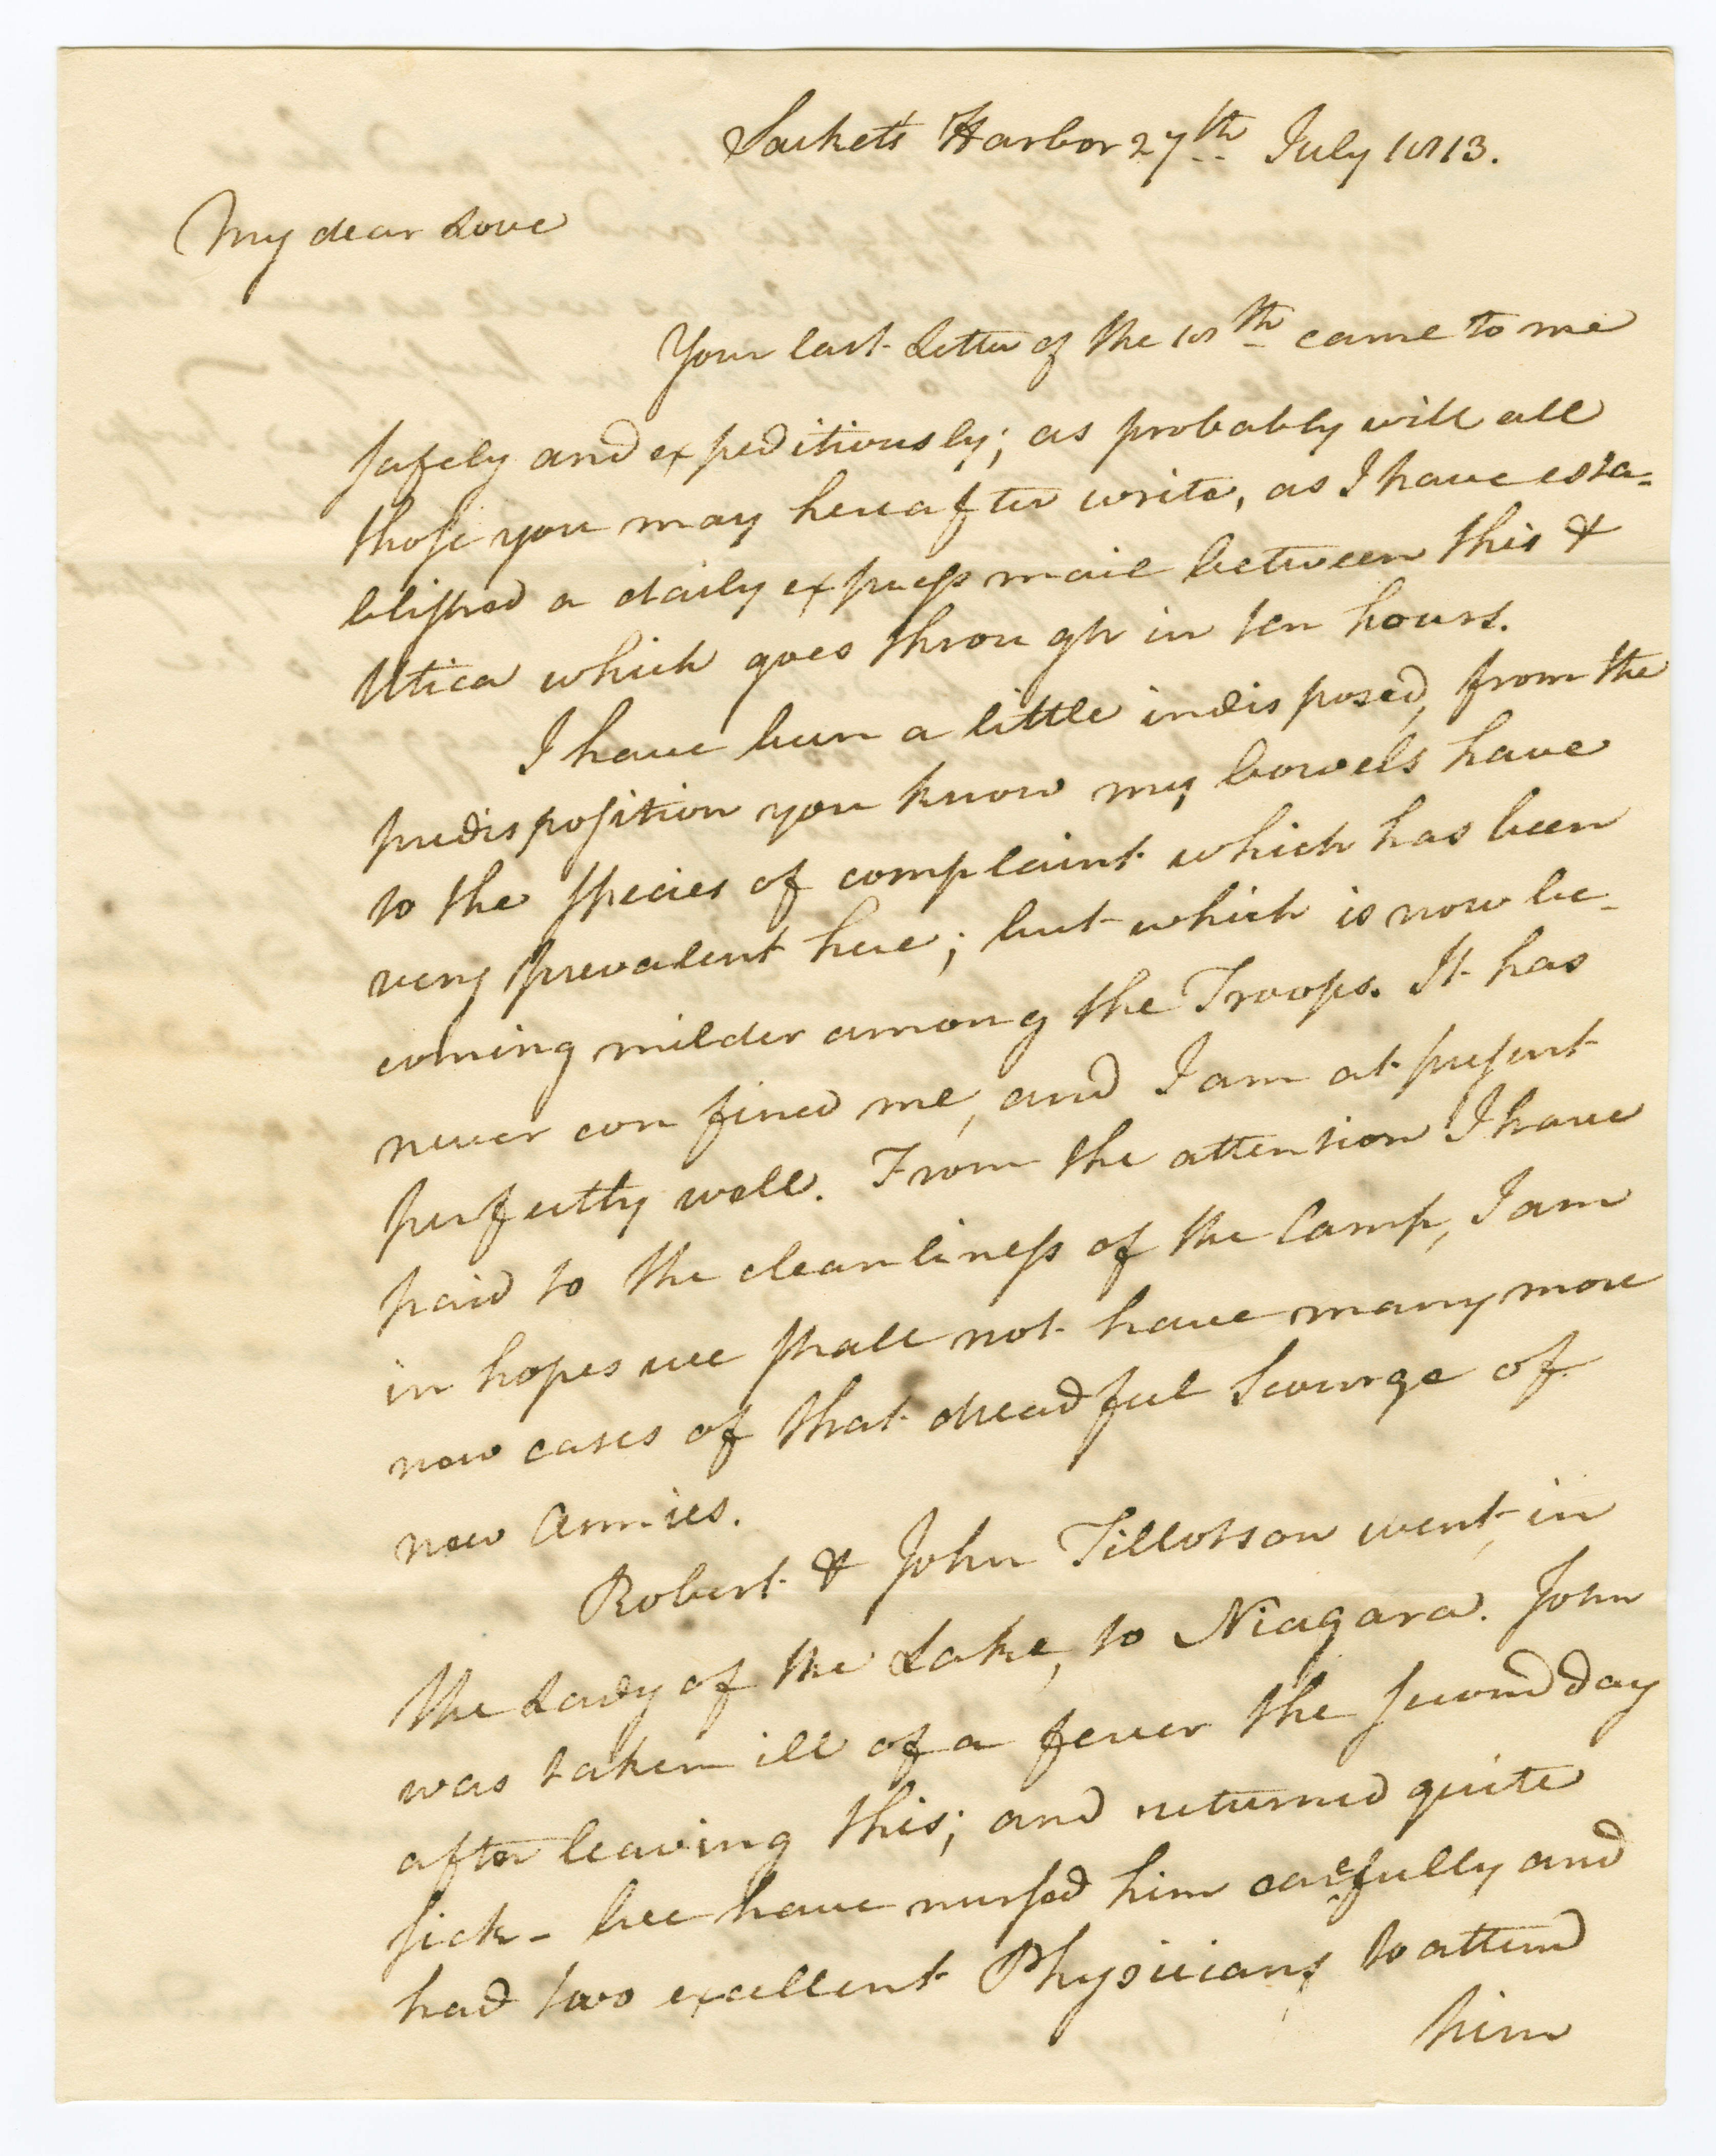 Sacket's Harbor 27th July 1813.
My dear Love
Your last Letter of the 18th came to me
safely and expeditiously; as probably will all
those you may hereafter write, as I have esta-
blished a daily express mail between this &
Utica which goes through in ten hours.
I have been a little indisposed, from the
predisposition you know my bowels have
to the species of complaint which has been
very prevalent here; but which is now be-
coming milder among the Troops. It has
never confined me, and I am at present
perfectly well. From the attention I have
paid to the cleanliness of the Camp, I am
in hopes we shall not have many more
new cases of that dreadful Scourge of
new Armies.
Robert & John Tillotson went, in
the Lady of the Lake, to Niagara. John
was taken ill of a fever the second day
after leaving this; and returned quite
sick - We have nursed him carefully and
had two excellent Physicians to attend
him